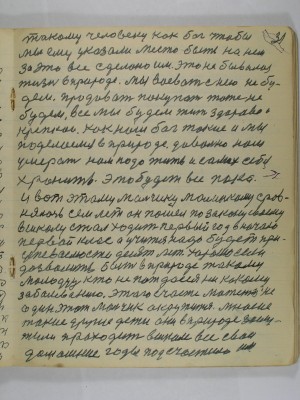 такому человеку как бог чтобы
мы ему указали место быть на ней
за это все сделано им. Это не бывалая
жизнь в природе. Мы воевать с нею не бу-
дем. продовать покупать тоже не
будем, все мы будем жить здорово и
крепко. как наш бог такие и мы
поделаемся в природе довольно нам
умерать нам надо жить и самих себя
хранить. Это будет все наше.
И вот этому мальчику молинькому сров-
нялось семь лет он пошел по закону своему
в школу стал ходить первый год в начало
первый клас а учится надо будет при-
дется десять лет хорошо если
дозволить быть в природе такому
молодцу кто не поддовался ни какому
заболеванию. Этого счастя
один этот мальчик окружится. Многие
такие другие дети они в природе
проходят в школе все свои
домашние годы под счастием